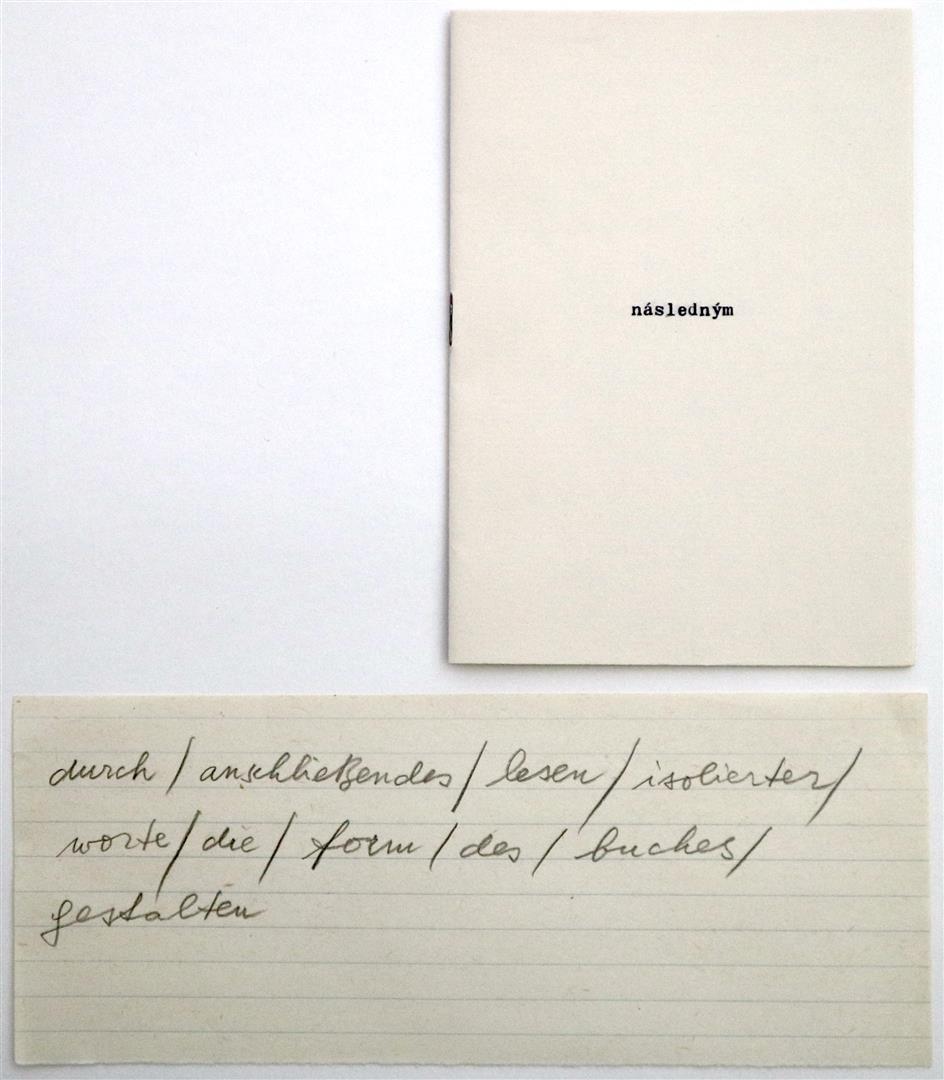 následným
durch / anschließendes / lesen / isolierter /
worte / die / form / des / buches /
gestalten